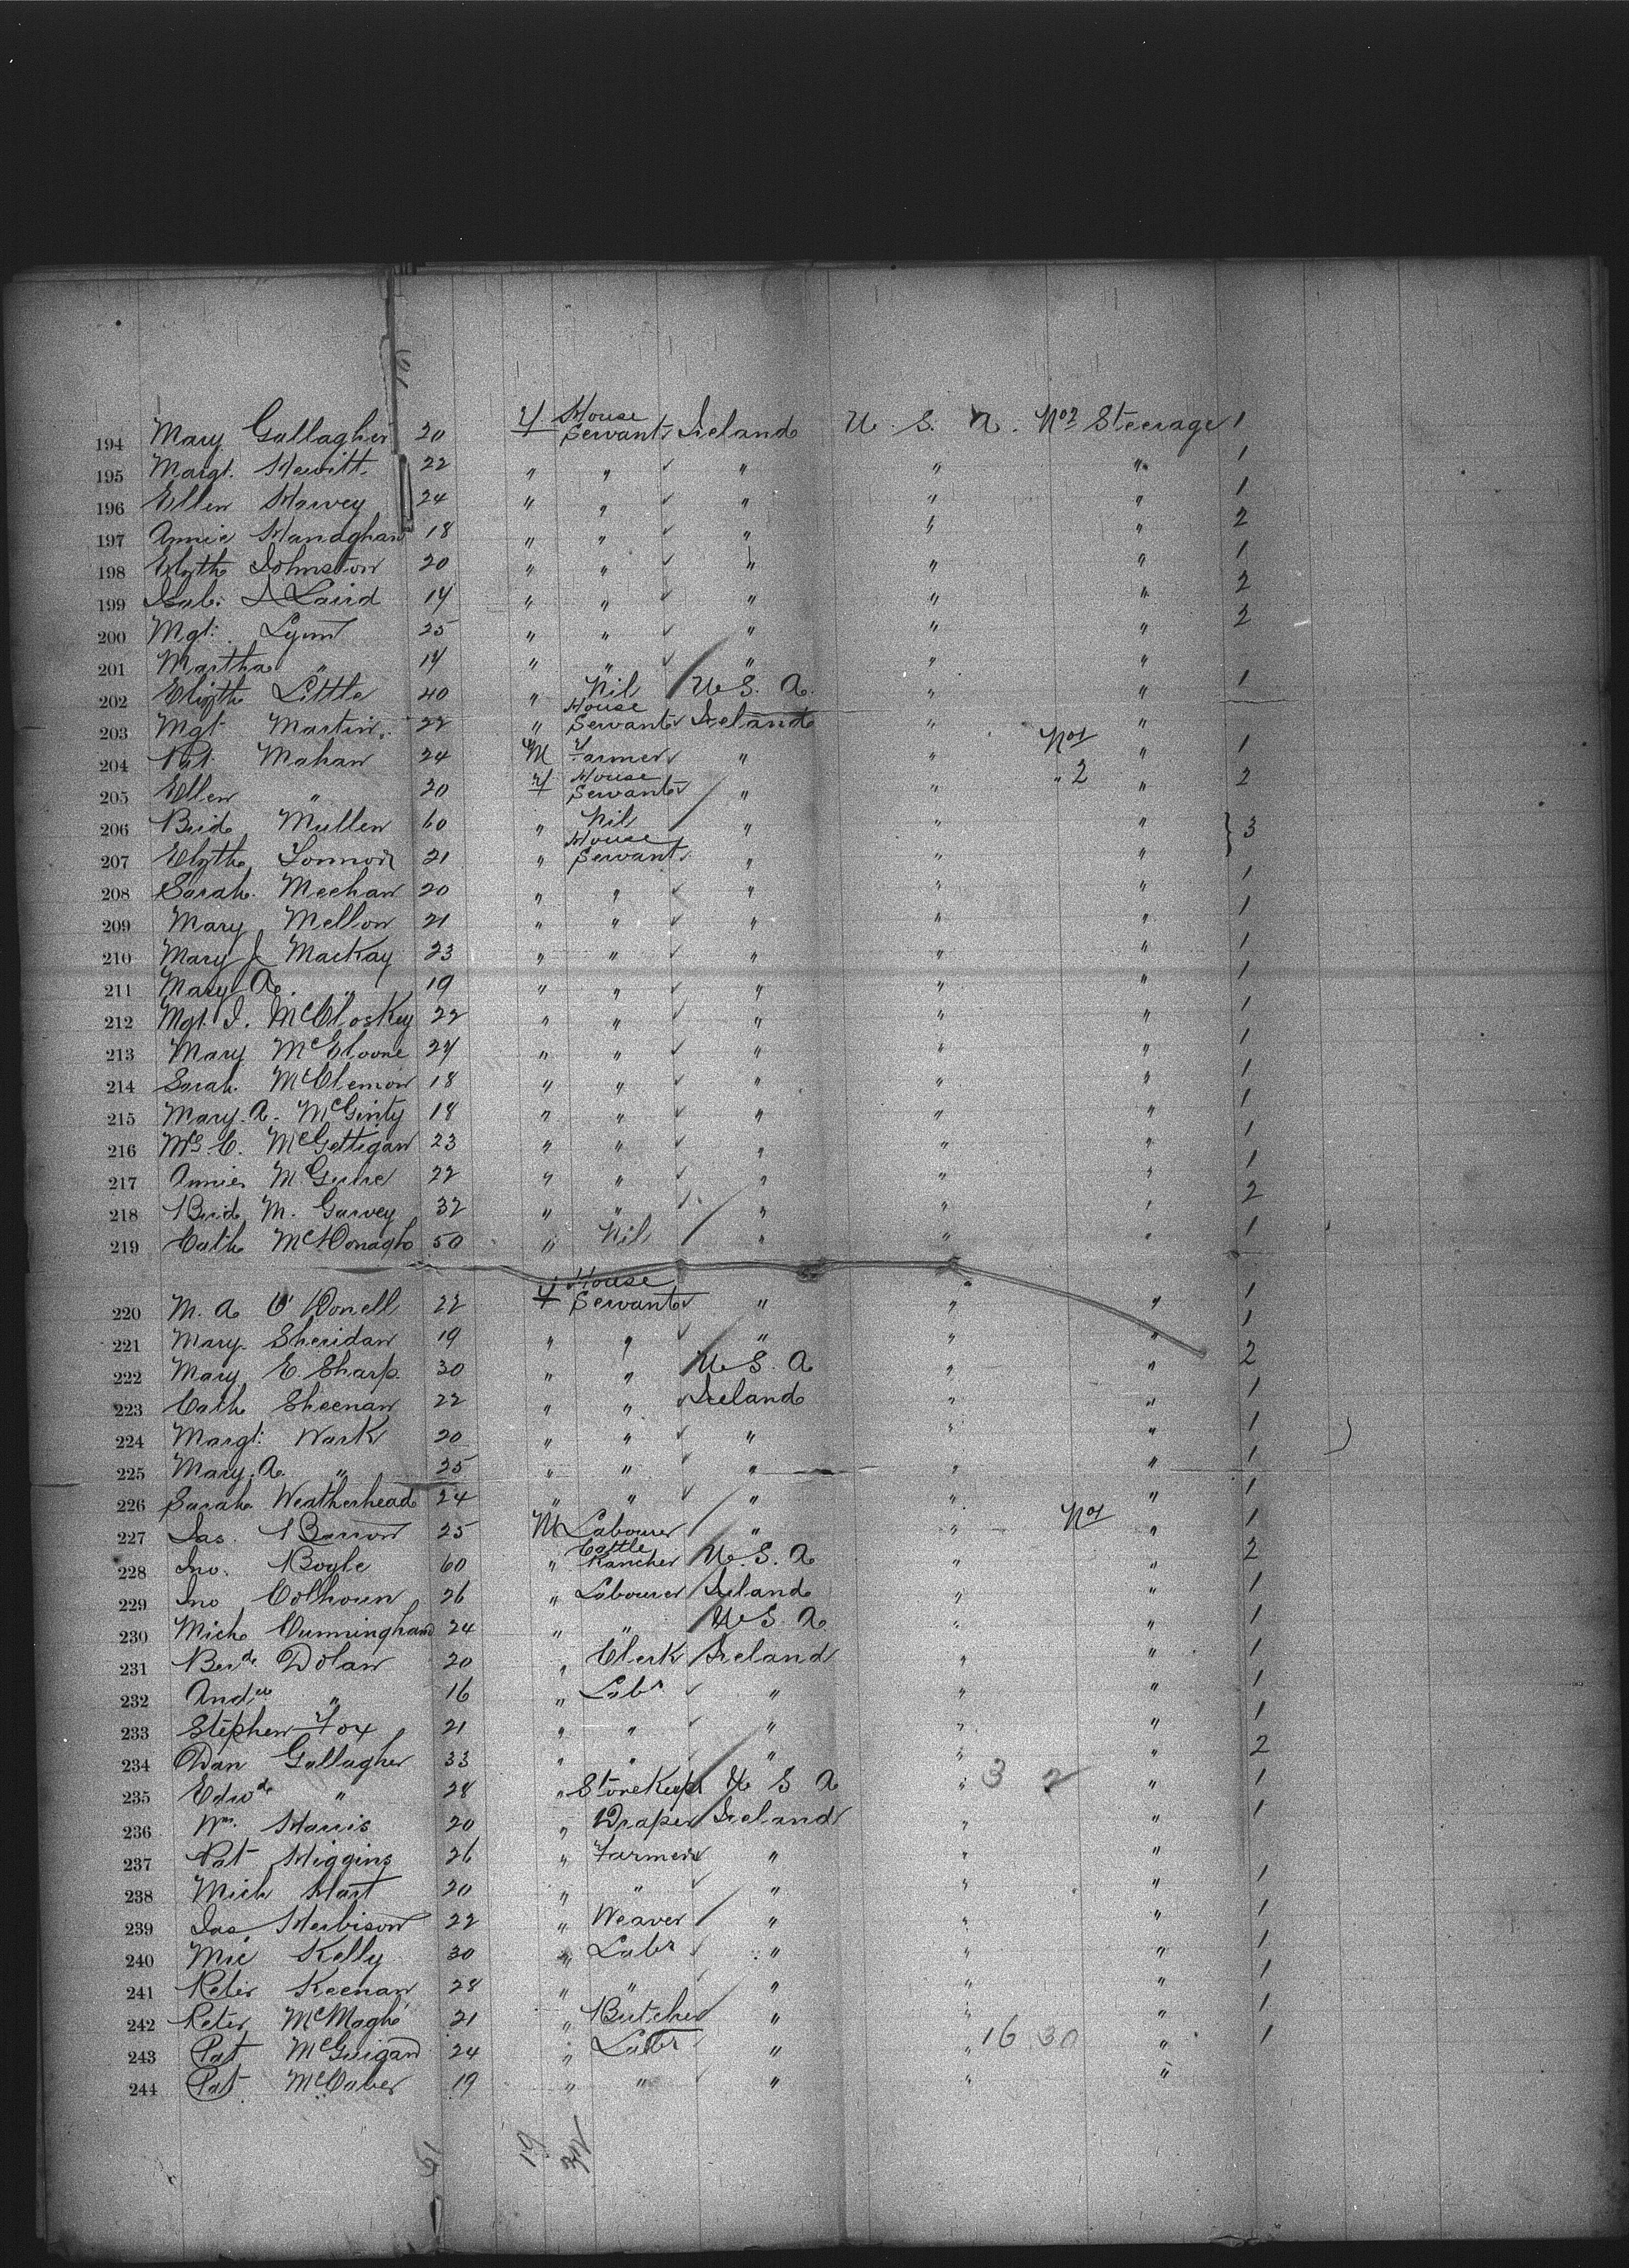 194 Mary Gallagher 20 F House Servant Ireland U. S. A. No 2 Steerage 1
195 Margt. Hewitt 22 " " " " " 1
196 Ellen Harvey 24 " " " " " 1
197 Annie Managhan 18 " " " " " 2
198 Elizth Johnston 20 " " " " " 1
199 Isab. Laird 14 " " " " " 2
200 Mgt. Lynn 25 " " " " " 2
201 Martha " 14 " " " " "
202 Elizth Little 40 " Nil U. S. A. " " 1
203 Mgt Martin 22 " House Servant Ireland " "
204 Pat. Mahan 24 M Farmer " " No 1 " 1
205 Ellen " 20 F House Servant " " " 2 " 2
206 Brid Mullen 60 " Nil " " " 3
207 Elizth 21 " House Servant " " "
208 Sarah Meehan 20 " " " " " 1
209 Mary Mellon 21 " " " " " 1
210 Mary J MacKay 23 " " " " " 1
211 Mary A. " 19 " " " " " 1
212 Mgt. J. McCloskey 22 " " " " " 1
213 Mary McGloone 24 " " " " " 1
214 Sarah McClemon 18 " " " " " 1
215 Mary A. McGinty 18 " " " " " 1
216 Mrs C. McGettigan 23 " " " " " 1
217 Annie McGuire 22 " " " " " 1
218 Brid M. Garvey 32 " " " " " 2
219 Cath McDonagh 50 " Nil " " " 1
220 M. A O'Donell 22 F House Servant " " " 1
221 Mary Sheridan 19 " " " " " 1
222 Mary E. Sharp 30 " " U. S. A " " 2
223 Cath Sheenan 22 " " Ireland " " 1
224 Margt. Wark 20 " " " " " 1
225 Mary A. " 25 " " " " " 1
226 Sarah Weatherhead 24 " " " " " 1
227 Jas. Barron 25 M Labourer " " No 1 " 1
228 Jno. Boyle 60 " Cattle Rancher U. S. A " " 2
229 Jno Colhoun 26 " Labourer Ireland " " 1
230 Mich Cunningham 24 " " U. S. A " " 1
231 Berd. Dolan 20 " Clerk Ireland " " 1
232 Andw " 16 " Labr " " " 1
233 Stephen Fox 21 " " " " " 1
234 Dan Gallagher 33 " " " " " 2
235 Edwd " 28 " Storekeepr U S A " 3 2 " 1
236 Wm. Harris 20 " Draper Ireland " " 1
237 Pat Higgins 26 " Farmer " " "
238 Mich Hart 20 " " " " " 1
239 Jas. Herbison 22 " Weaver " " " 1
240 Mic Kelly 30 " Labr " " " 1
241 Peter Keenan 28 " " " " " 1
242 Peter McMagh 21 " Butcher " " " 1
243 Pat McGuigan 24 " Labr " " 16 30 " 1
244 Pat McCaber 19 " " " " "
19